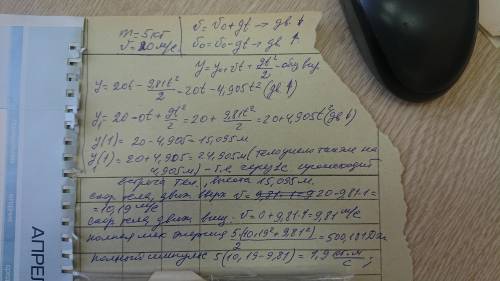 m = 5 кг
v = 20 м/с
v = v₀ + gt → дв ↓
v₀ = v₀ - gt → дв ↑
y = y₀ + vt + gt²/2 - общ вид
y = 20t - 9,81t²/2 = 20t - 4,905t² (дв ↑)
y₁ = 20 - 0t + gt²/2 = 20 + 9,81t²/2 = 20 + 4,905t² (дв ↓)
y(1) = 20 - 4,905 = 15,095 м
y₁(1) = 20 + 4,905 = 24,905 м (тело
4,905 м) - т.к. через 1с происходит
встреча тел, высота 15,095 м.
скор тела, движ вверх v = 20 - 9,81·1 =
= 10,19 м/с
скор тела движ вниз - v = 0 + 9,81·1 = 9,81 м/с
полная мех энергия 5(10,19² + 9,81²)/2 = 500,181 Дж
полный импульс 5(10,19 - 9,81) = 1,9 кг·м/с ;
АПРЕЛ